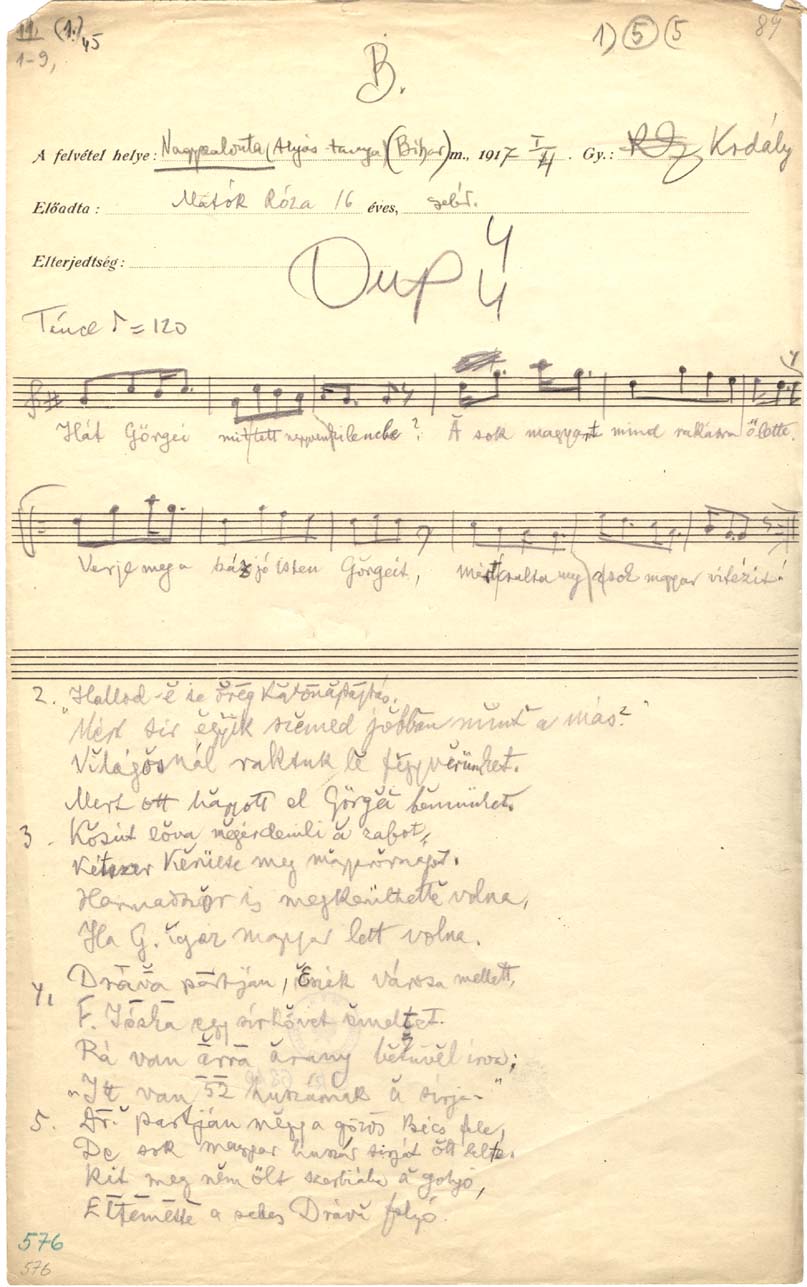 11. (1.) 45
1-9,
1) 5 (5
84
B.
A felvétel helye: Nagyszalonta (Atyás tanya) (Bihar) m., 1917 I/4. Gy.: Kodály
Előadta: Mátók Róza 16 éves,
Elterjedtség:
Dup 4
4
= 120
Hát Görgei mit tett negyvenkilencbe? A sok magyart mind rakásra ölette.
Verje meg a házjó Isten Görgeit, mért csalta meg a sok magyar vitézit!
2. "Hallod-ĕ te örĕg katonapajtás,
Mért sír ĕgyik szĕmed jobban mint a más?"
Világosnál raktuk lĕ fĕgyvĕrünket.
Mert ott hagyott el Görgĕi bennünket.
3. Kosút lova mĕgérdemli a zabot,
Kétszer kĕrülte meg magyarországot.
Harmadszor is megkerülhettĕ volna,
Ha G. igaz magyar lett volna.
4. Dráva partján, Eszék városa mellett,
F. Jóska egy sírkövet ĕmeltet.
Rá van arra arany bĕtűvel írva:
"Itt van 52 huszárnak a sírja-"
5. Dr. partján mĕgy a gőzös Bécs fele,
De sok magyar huszár sírját ott lelte.
Kit meg nĕm ölt a golyó,
Eltĕmette a sebes Dráva folyó.
576
576